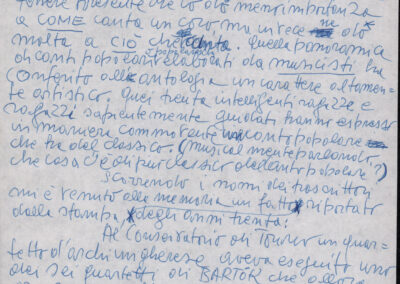 tenere presente che io do meno importanza
a COME canta un coro ma invece ne do
molta a CIÒ che canta. Quella panoramica
di canti popolari elaborati da musicisti ha
conferito alla antologia un carattere altamen-
te artistico. Quei trenta intelligenti ragazze e
ragazzi sapientemente guidati hanno espresso
in maniera commovente un canto popolare
che sa del classico. (musicalmente parlando,
che cosa c'è di più classico del canto popolare?)
Scorrendo i nomi dei trascrittori
mi è venuto alla memoria un fatto riportato
dalla stampa, degli anni trenta:
Al Conservatorio di Torino un quar-
tetto d'archi ungherese aveva eseguito uno
dei sei quartetti di BARTÓK che allora